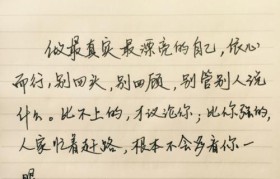 做最真实最漂亮的自己，依心
而行，别回头，别回顾，别管别人说
什么。比不上的，才议论你；比你强的，
人家忙着赶路，根本不会多看你一
眼